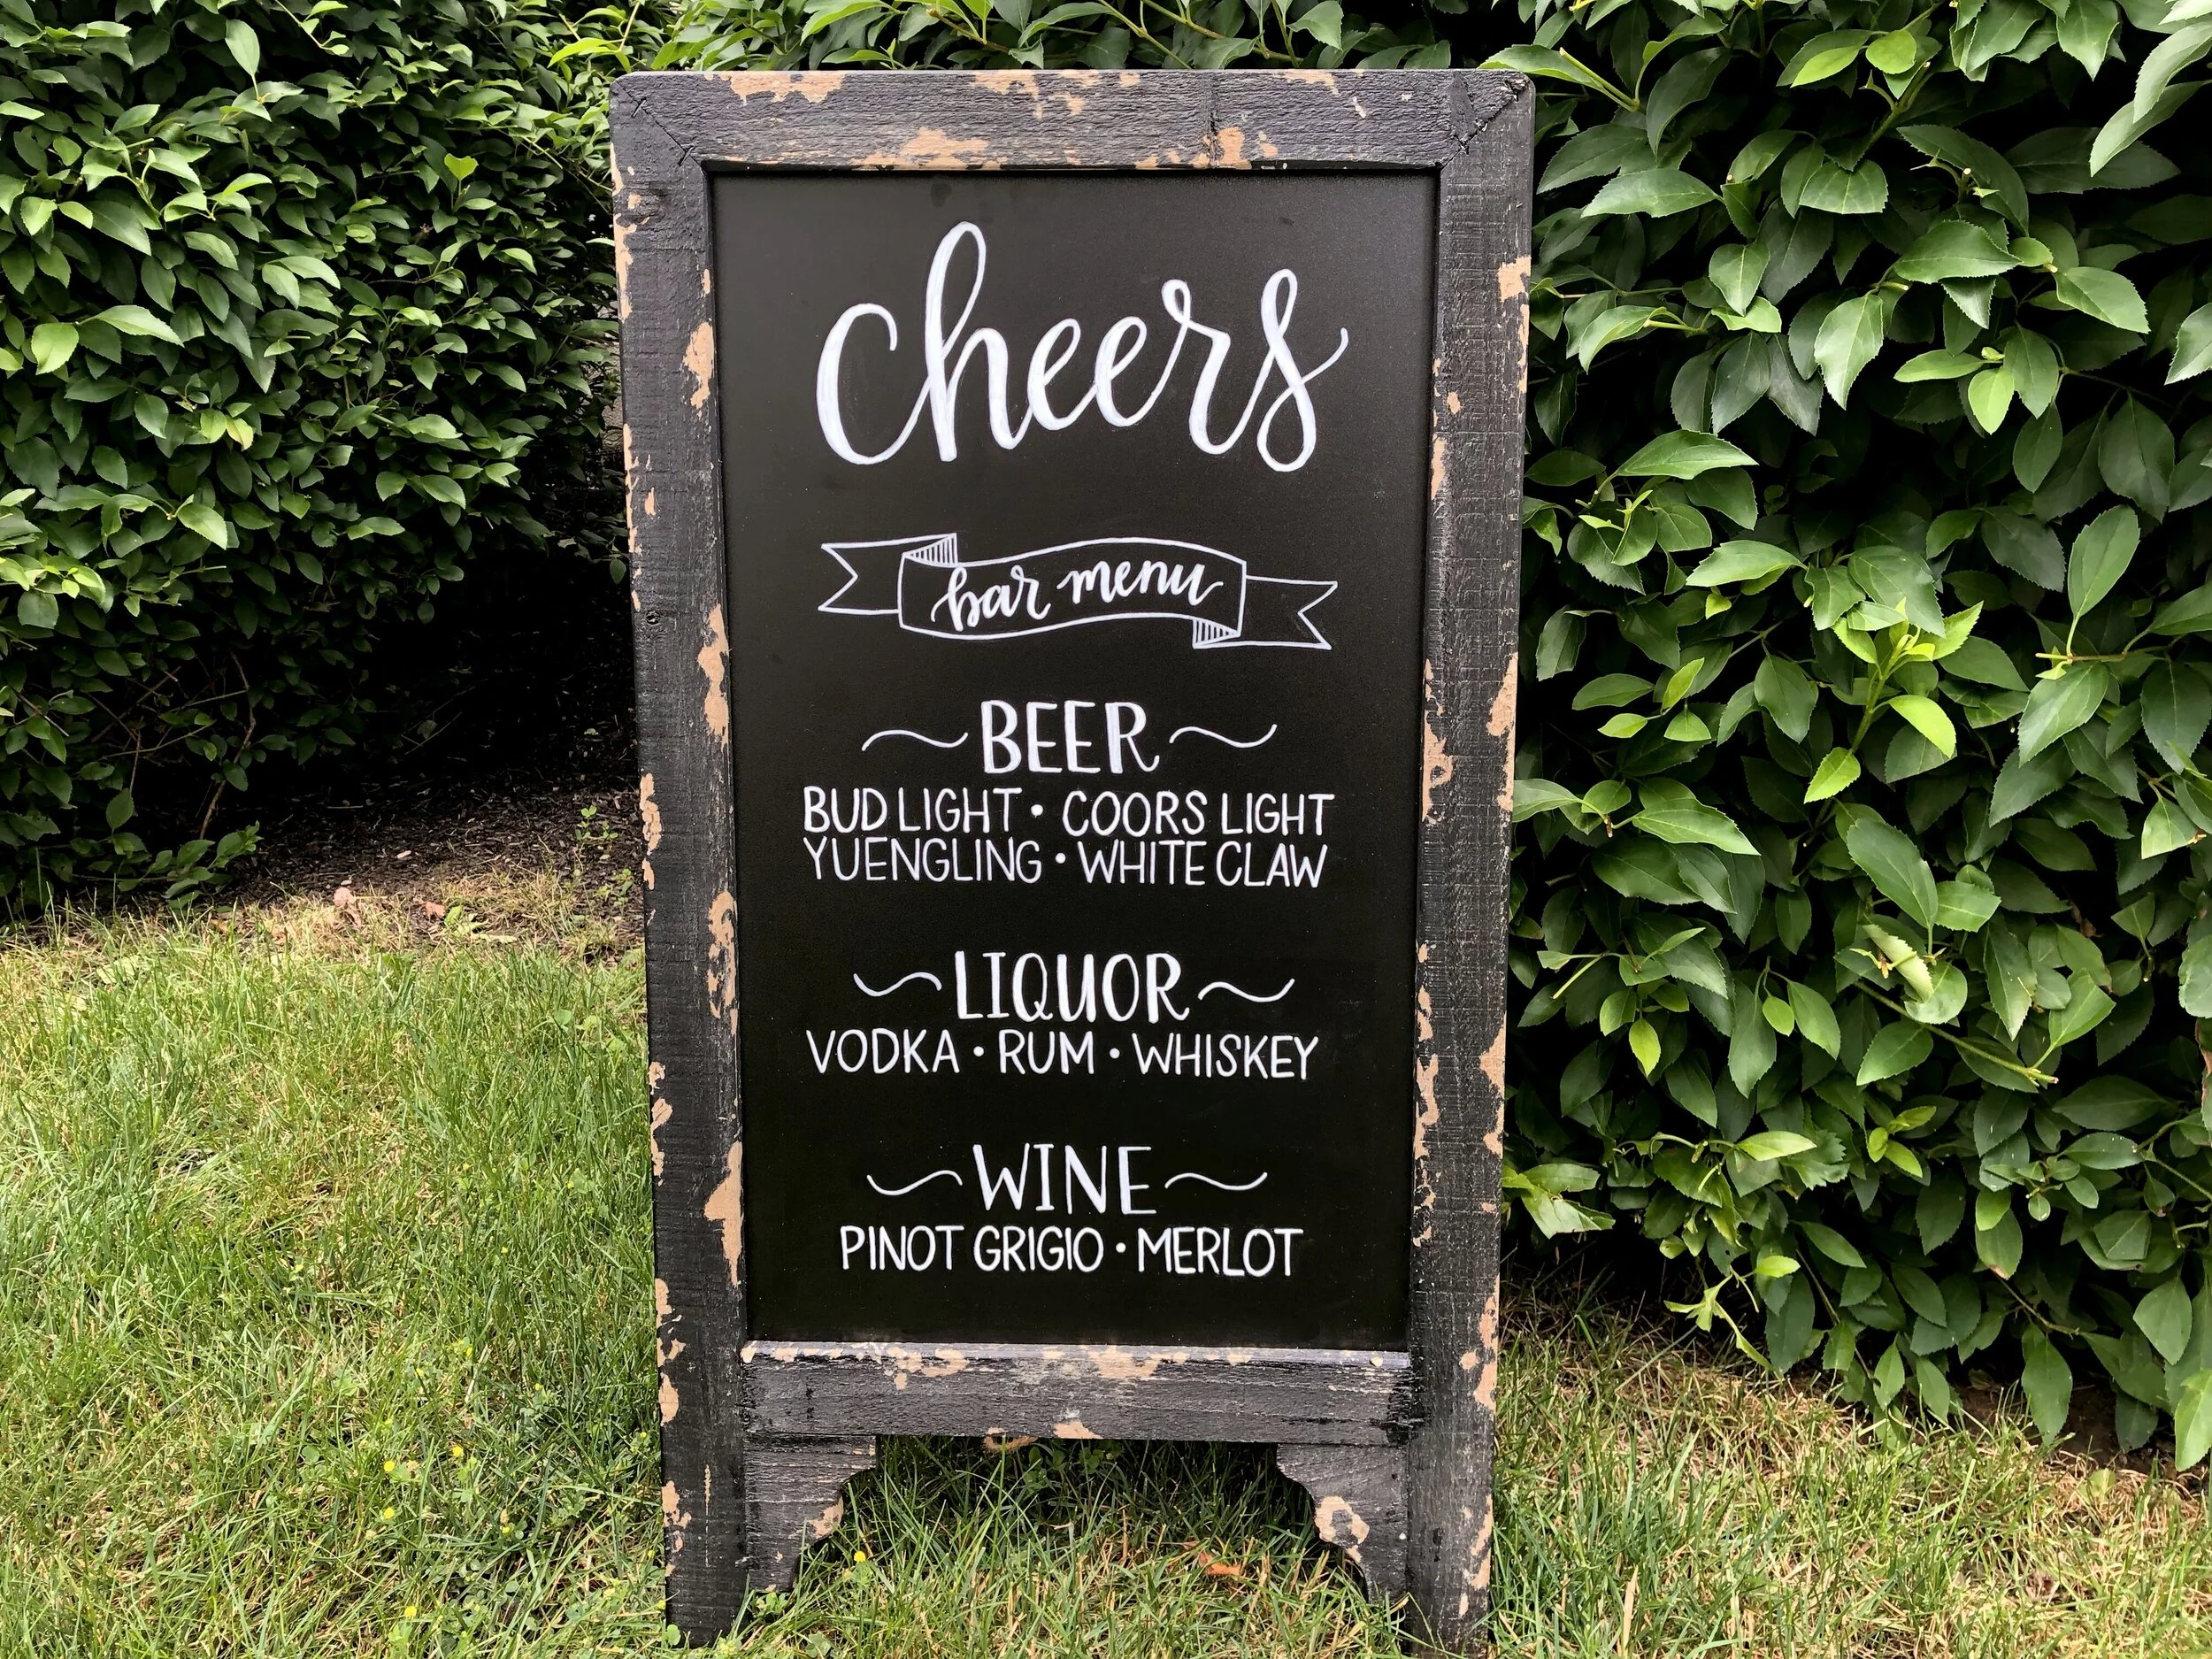 cheers
bar menu
BEER
BUD LIGHT • COORS LIGHT
YUENGLING • WHITE CLAW
LIQUOR
VODKA • RUM • WHISKEY
WINE
PINOT GRIGIO • MERLOT